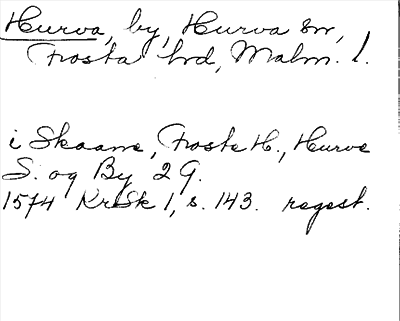 Hurva, by, Hurva sn,
Frosta hrd, Malm. l.
i Skaane, Froste H., Hurve
S. og By 2 G.
1574 KrSk 1, s. 143. regest.